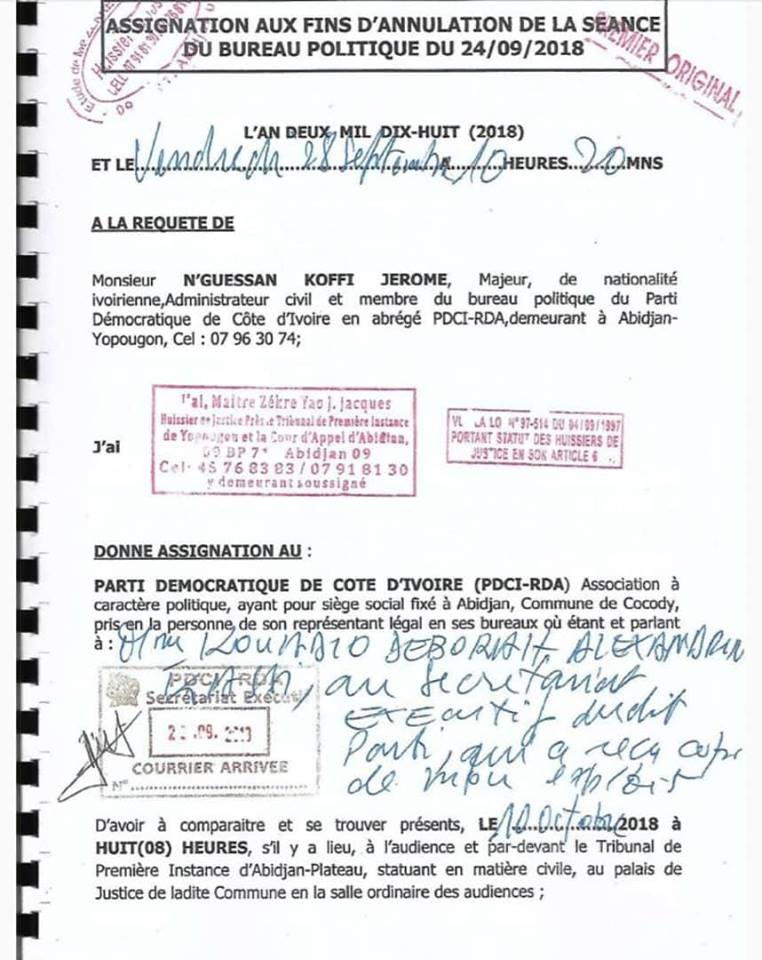 ASSIGNATION AUX FINS D'ANNULATION DE LA SEANCE
DU BUREAU POLITIQUE DU 24/09/2018
PREMIER ORIGINAL
L'AN DEUX MIL DIX-HUIT (2018)
ET LE Vendredi 28 Septembre A 10 HEURES 20 MNS
A LA REQUETE DE
Monsieur N'GUESSAN KOFFI JEROME, Majeur, de nationalité
ivoirienne,Administrateur civil et membre du bureau politique du Parti
Démocratique de Côte d'Ivoire en abrégé PDCI-RDA,demeurant à Abidjan-
Yopougon, Cel : 07 96 30 74;
J'ai
J'ai, Maître Zékre Yao J. Jacques
Huissier de Justice Près le Tribunal de Première Instance
de Yopougon et la Cour d'Appel d'Abidjan,
09 BP 7* Abidjan 09
Cel: 45 76 83 83 / 07 91 81 30
y demeurant soussigné
VU LA LOI N°97-514 DU 04/09/1997
PORTANT STATUT DES HUISSIERS DE
JUSTICE EN SON ARTICLE 6
DONNE ASSIGNATION AU :
PARTI DEMOCRATIQUE DE COTE D'IVOIRE (PDCI-RDA) Association à
caractère politique, ayant pour siège social fixé à Abidjan, Commune de Cocody,
pris en la personne de son représentant légal en ses bureaux où étant et parlant
à : Mme DEBORAH ALEXANDRIN
au Secrétariat
exécutif dudit
Parti, qui a reçu copie
de mon exploit
PDCI-RDA
Secrétariat Exécutif
COURRIER ARRIVEE
N°
D'avoir à comparaitre et se trouver présents, LE 10 Octobre 2018 à
HUIT(08) HEURES, s'il y a lieu, à l'audience et par-devant le Tribunal de
Première Instance d'Abidjan-Plateau, statuant en matière civile, au palais de
Justice de ladite Commune en la salle ordinaire des audiences ;